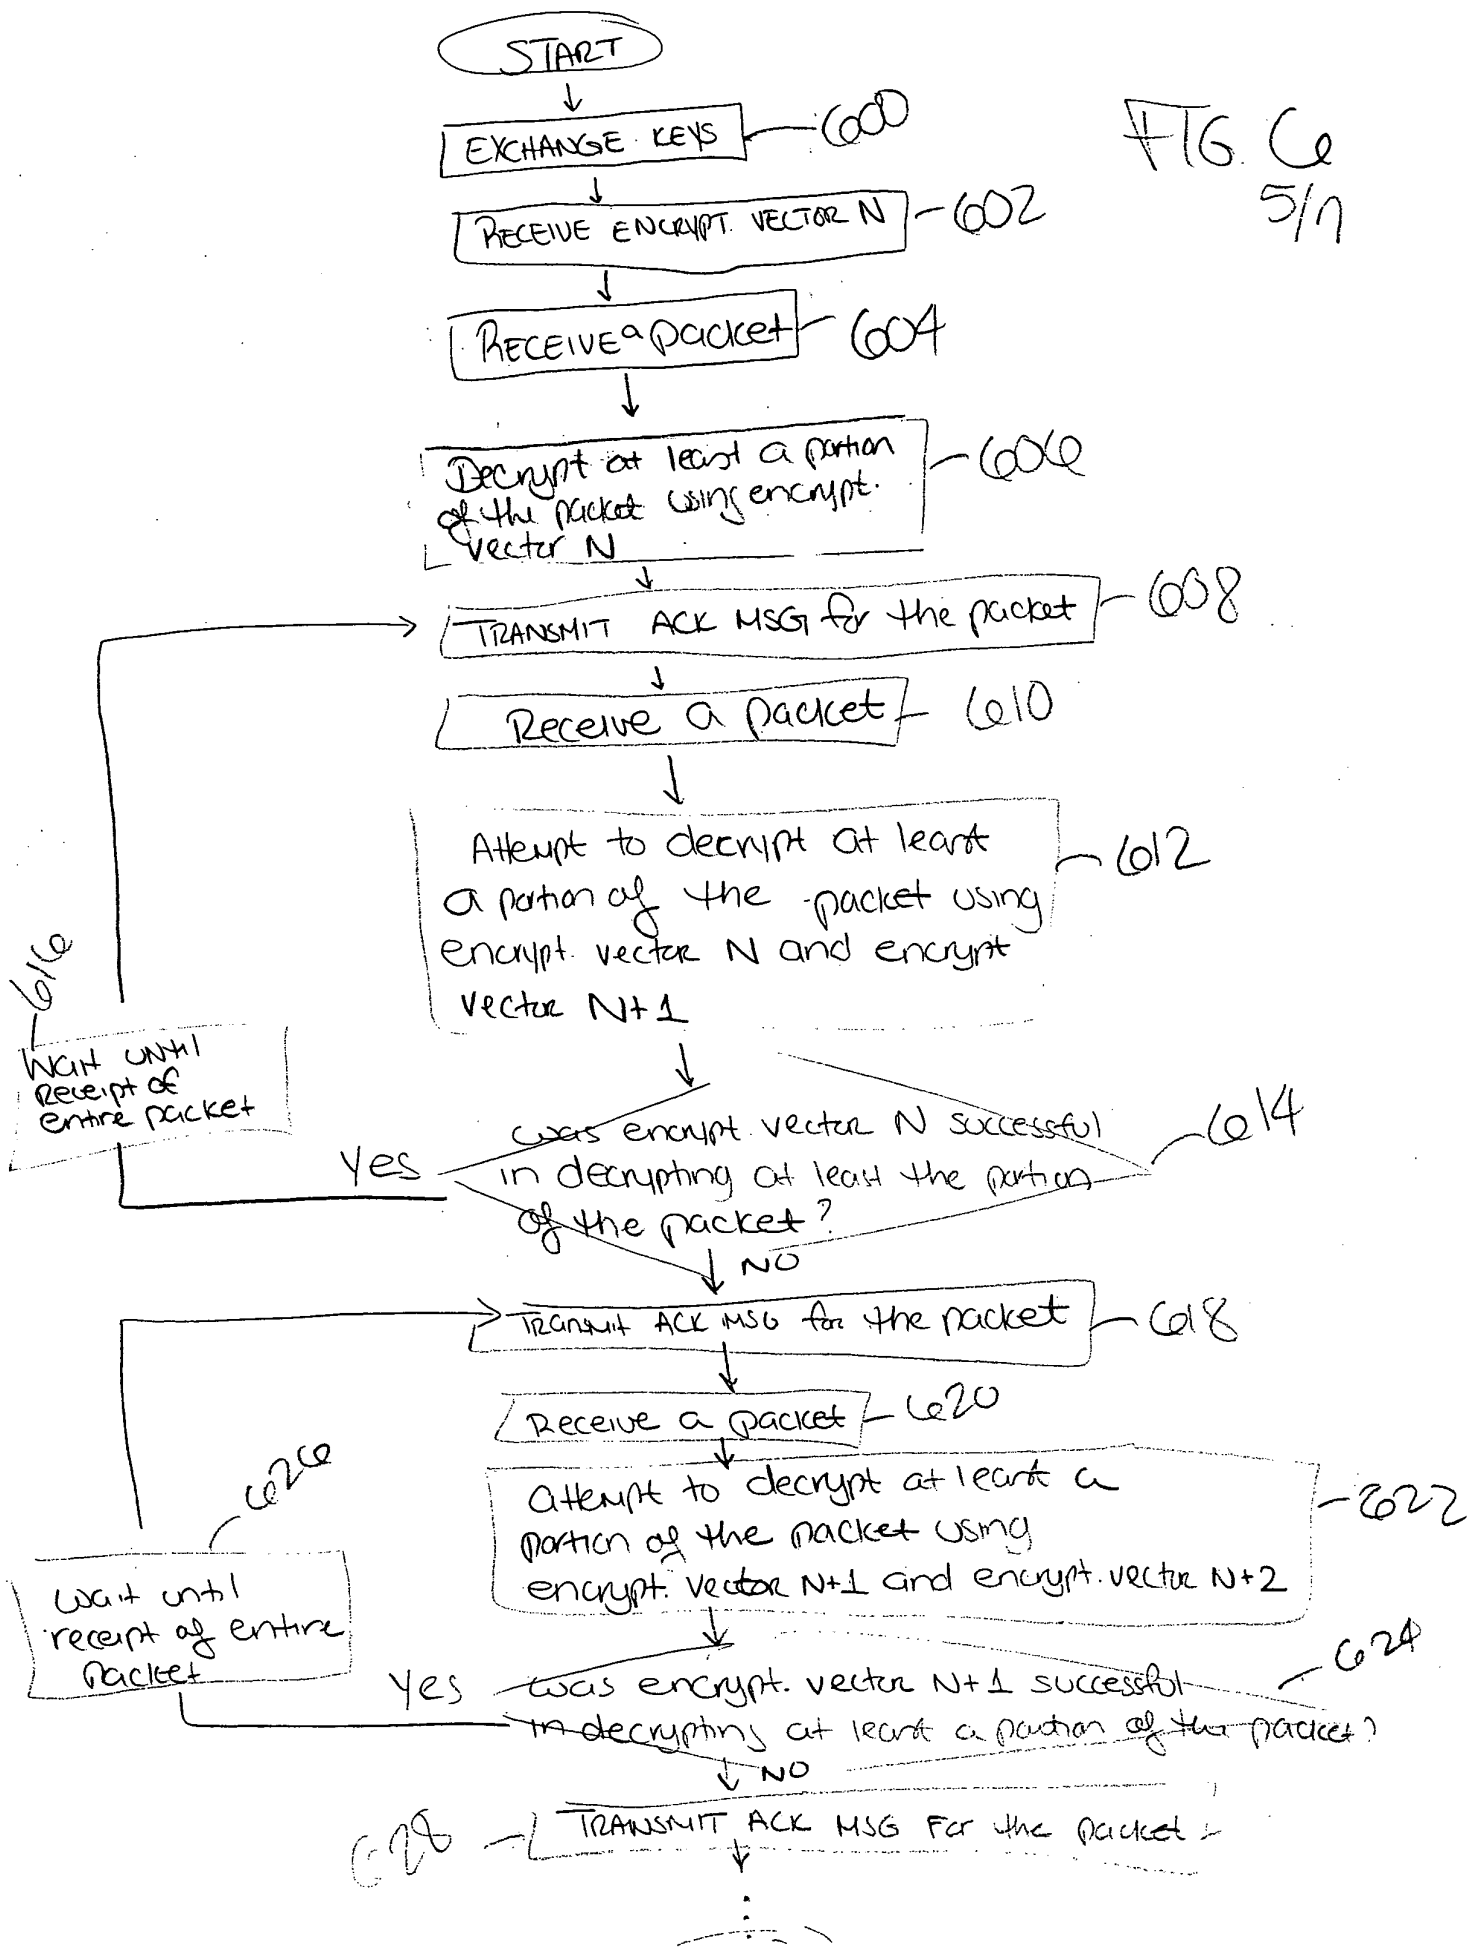 START
EXCHANGE KEYS
600
FIG. 6
5/7
RECEIVE ENCRYPT. VECTOR N
602
RECEIVE a packet
604
Decrypt at least a portion
of the packet using encrypt.
vector N
606
TRANSMIT ACK MSG for the packet
608
Receive a packet
610
Attempt to decrypt at least
a portion of the packet using
encrypt. vector N and encrypt
vector N+1
612
616
Wait until
Receipt of
entire packet
was encrypt. vector N successful
in decrypting at least the portion
of the packet?
614
Yes
NO
Transmit ACK MSG for the packet
618
Receive a packet
620
attempt to decrypt at least a
portion of the packet using
encrypt. vector N+1 and encrypt. vector N+2
622
626
Wait until
receipt of entire
packet
Yes
was encrypt. vector N+1 successful
in decrypting at least a portion of the packet?
624
NO
628
TRANSMIT ACK MSG For the packet